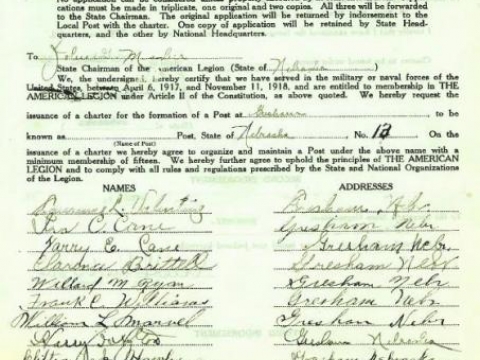 must be made in triplicate, one original and two copies. All three will be forwarded
to the State Chairman. The original application will be returned by indorsement to the
Local Post with the charter. One copy of application will be retained by State Head-
quarters, and the other by National Headquarters.
To
State Chairman of the American Legion (State of Nebraska
We, the undersigned, hereby certify that we have served in the military or naval forces of the
United States, between April 6, 1917, and November 11, 1918, and are entitled to membership in THE
AMERICAN LEGION under Article II of the Constitution, as above quoted. We hereby request
issuance of a charter for the formation of a Post at Gresham to be
known as Post, State of Nebraska No. 13 On the
(Name of Post)
issuance of a charter we hereby agree to organize and maintain a Post under the above name with a
minimum membership of fifteen. We hereby further agree to uphold the principles of THE AMERICAN
LEGION and to comply with all rules and regulations prescribed by the State and National Organizations
of the Legion.
NAMES ADDRESSES
Gresham
C. Cane Gresham Nebr
Harry E. Cane Gresham Nebr.
Gresham Nebr
Willard M. Gresham Nebr
Frank C Williams Gresham Nebr
William L. Marvel Gresham Nebr
Harry Gresham Nebraska
Gresham Nebraska